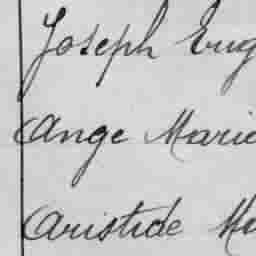 Joseph Eug
Ange Marie
Aristide